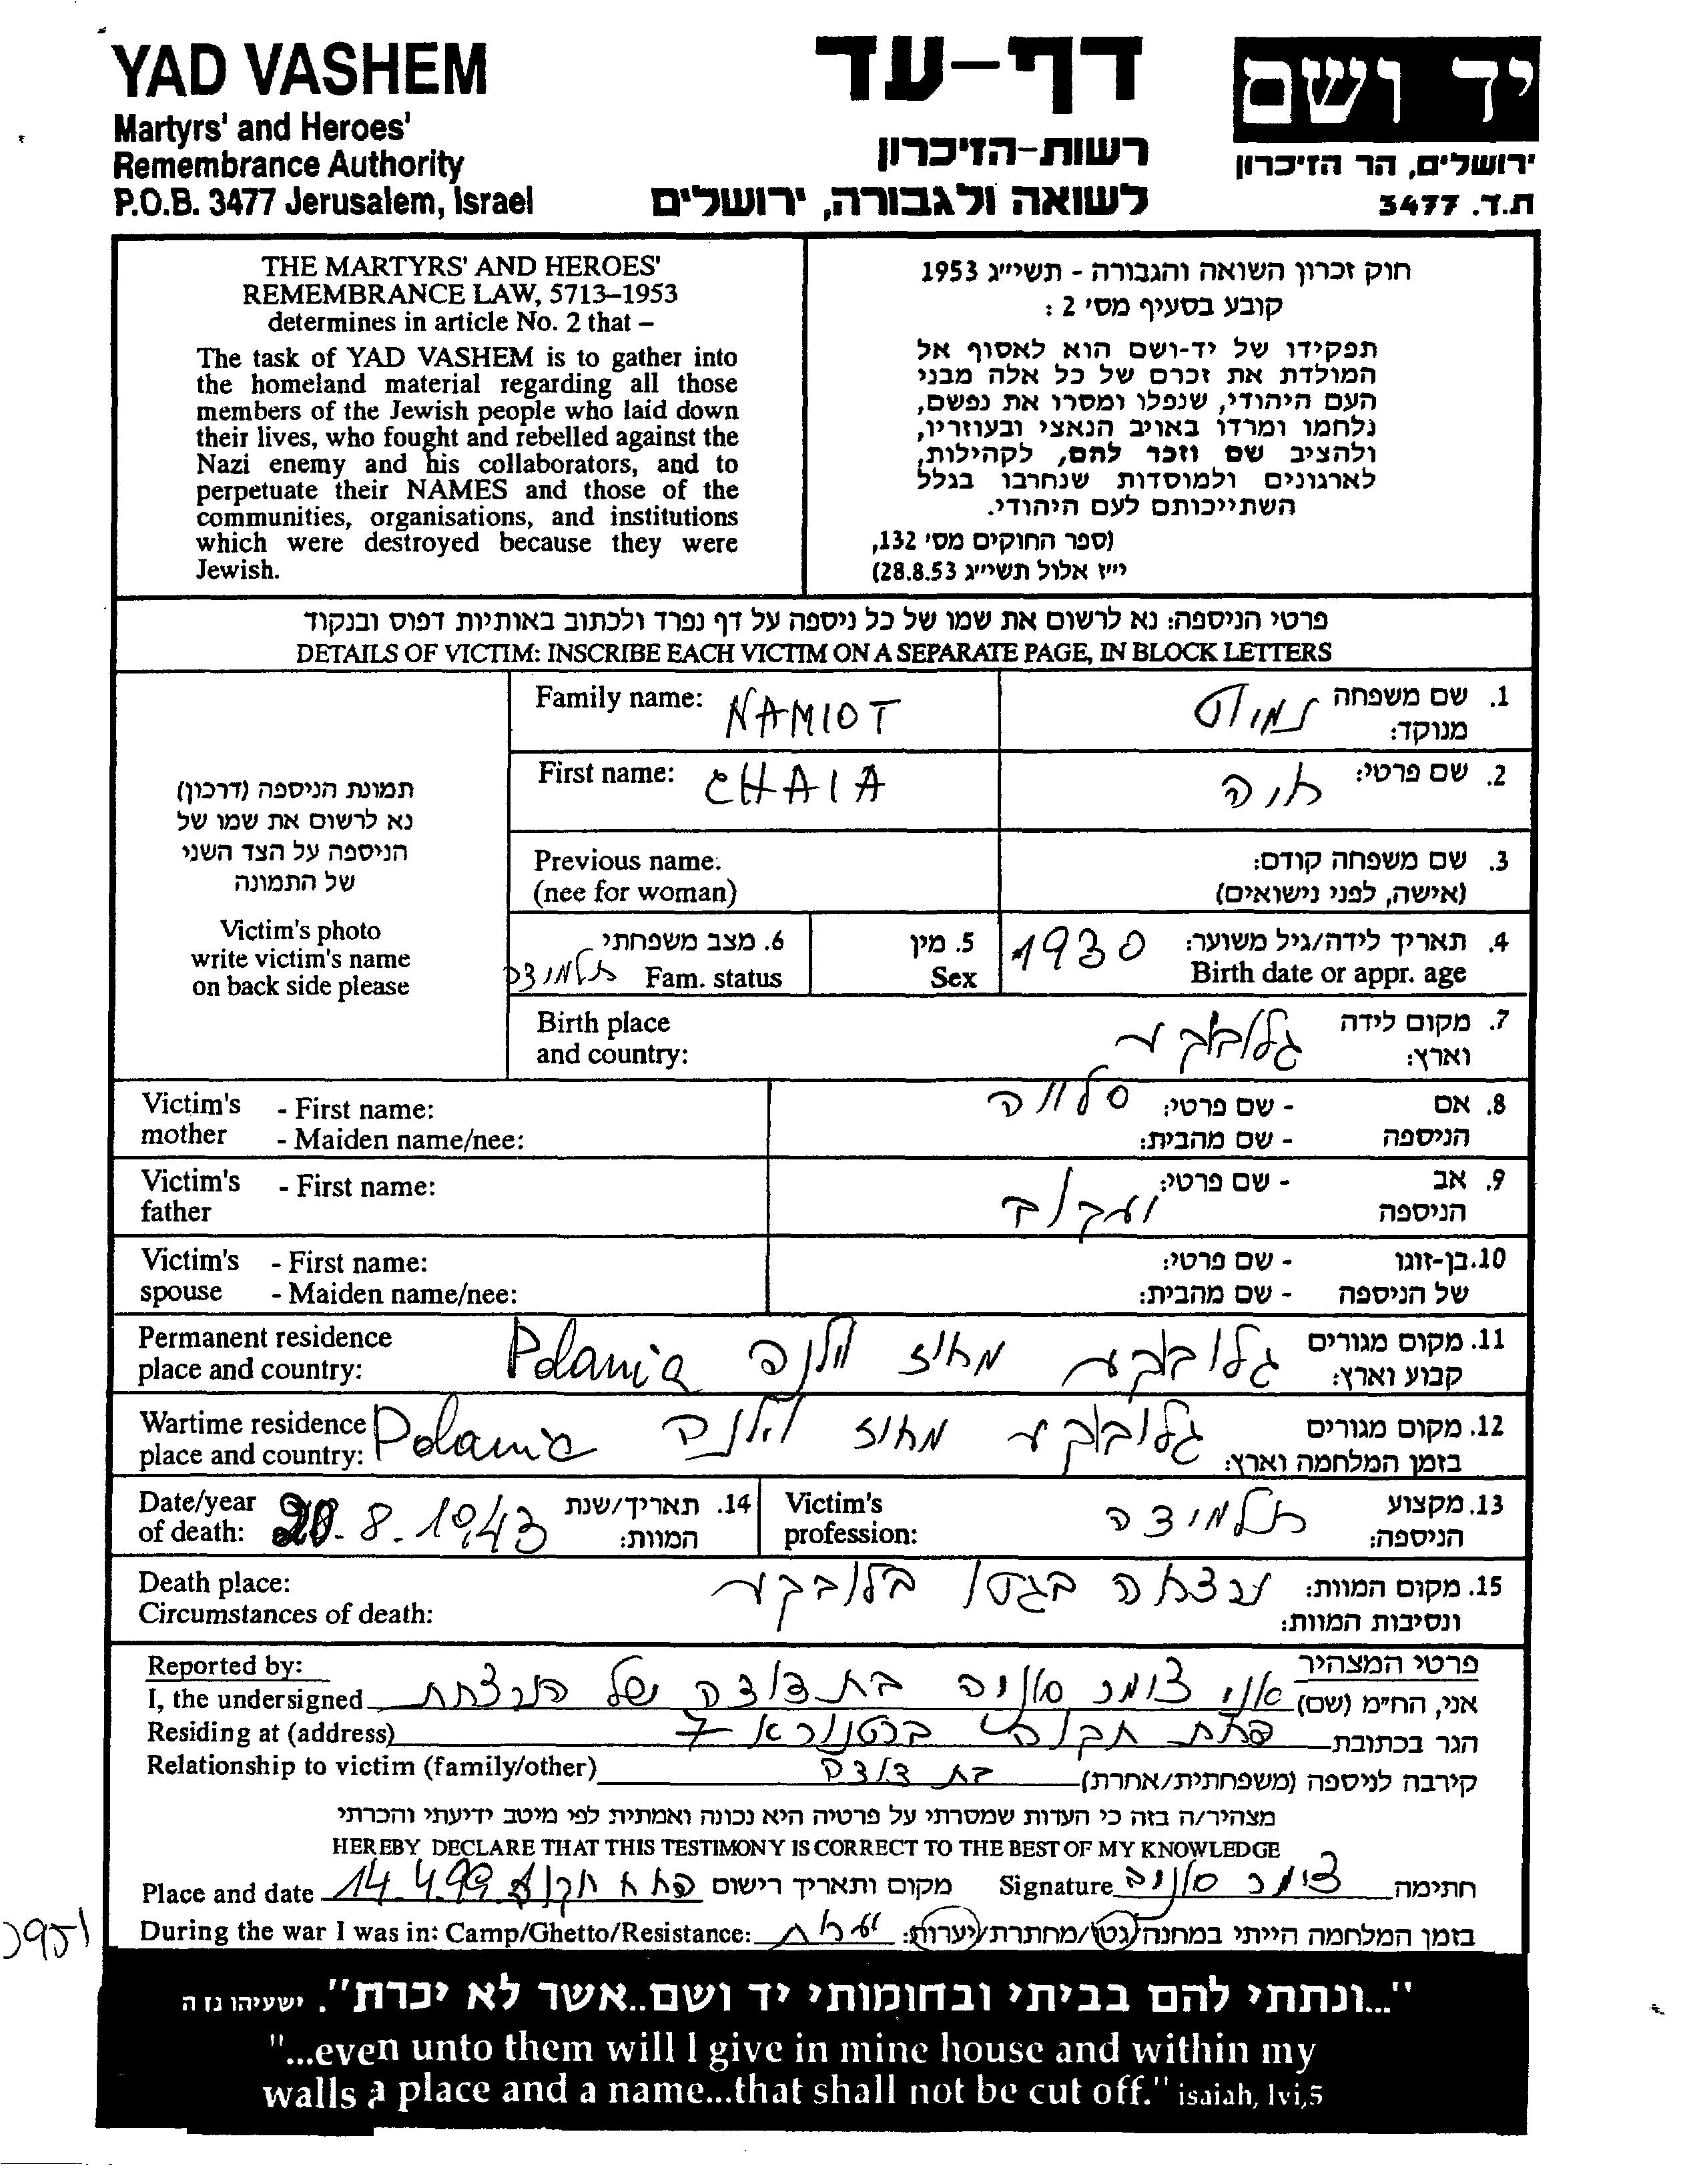 YAD VASHEM
Martyrs' and Heroes'
Remembrance Authority
P.O.B. 3477 Jerusalem, Israel
דף-עד
רשות-הזיכרון
לשואה ולגבורה, ירושלים
יד ושם
ירושלים, הר הזיכרון
ת.ד. 3477
THE MARTYRS' AND HEROES'
REMEMBRANCE LAW, 5713–1953
determines in article No. 2 that –
The task of YAD VASHEM is to gather into
the homeland material regarding all those
members of the Jewish people who laid down
their lives, who fought and rebelled against the
Nazi enemy and his collaborators, and to
perpetuate their NAMES and those of the
communities, organisations, and institutions
which were destroyed because they were
Jewish.
חוק זכרון השואה והגבורה - תשי״ג 1953
קובע בסעיף מס׳ 2 :
תפקידו של יד-ושם הוא לאסוף אל
המולדת את זכרם של כל אלה מבני
העם היהודי, שנפלו ומסרו את נפשם,
נלחמו ומרדו באויב הנאצי ובעוזריו,
ולהציב שם וזכר להם, לקהילות,
לארגונים ולמוסדות שנחרבו בגלל
השתייכותם לעם היהודי.
(ספר החוקים מס׳ 132,
י״ז אלול תשי״ג 28.8.53)
פרטי הניספה: נא לרשום את שמו של כל ניספה על דף נפרד ולכתוב באותיות דפוס ובנקוד
DETAILS OF VICTIM: INSCRIBE EACH VICTIM ON A SEPARATE PAGE, IN BLOCK LETTERS
תמונת הניספה (דרכון)
נא לרשום את שמו של
הניספה על הצד השני
של התמונה
Victim's photo
write victim's name
on back side please
Family name: NAMIOT
1. שם משפחה מנוקד: נמיוט
First name: CHAIA
2. שם פרטי: חיה
Previous name:
(nee for woman)
3. שם משפחה קודם:
(אישה, לפני נישואים)
6. מצב משפחתי
Fam. status תלמידה
5. מין
Sex
4. תאריך לידה/גיל משוער: 1930
Birth date or appr. age
Birth place
and country:
7. מקום לידה
וארץ: גלובוקע
Victim's mother - First name:
- Maiden name/nee:
8. אם הניספה - שם פרטי:
- שם מהבית:
Victim's father - First name:
9. אב הניספה - שם פרטי: יעקוב
Victim's spouse - First name:
- Maiden name/nee:
10. בן-זוגו של הניספה - שם פרטי:
- שם מהבית:
Permanent residence
place and country:
11. מקום מגורים
קבוע וארץ: גלובוקע מחוז וילנה Polania
Wartime residence
place and country:
12. מקום מגורים
בזמן המלחמה וארץ: גלובוקע מחוז וילנה Polania
Date/year
of death: 20.8.1943
14. תאריך/שנת
המוות:
Victim's
profession:
13. מקצוע
הניספה: תלמידה
Death place:
Circumstances of death:
15. מקום המוות:
ונסיבות המוות: נרצחה בגטו גלובוקע
Reported by:
פרטי המצהיר
I, the undersigned
אני, הח״מ (שם) צימר סוניה בת דודה של הנרצחת
Residing at (address)
הגר בכתובת פתח תקוה ברטנורא 7
Relationship to victim (family/other)
קירבה לניספה (משפחתית/אחרת) בת דודה
מצהיר/ה בזה כי העדות שמסרתי על פרטיה היא נכונה ואמתית לפי מיטב ידיעתי והכרתי
HEREBY DECLARE THAT THIS TESTIMONY IS CORRECT TO THE BEST OF MY KNOWLEDGE
Place and date 14.4.99 פתח תקוה מקום ותאריך רישום
Signature צימר סוניה חתימה
During the war I was in: Camp/Ghetto/Resistance:
בזמן המלחמה הייתי במחנה/גטו/מחתרת/יערות: יערות
"...ונתתי להם בביתי ובחומותי יד ושם..אשר לא יכרת". ישעיהו נו ה
"...even unto them will I give in mine house and within my
walls a place and a name...that shall not be cut off." isaiah, lvi,5